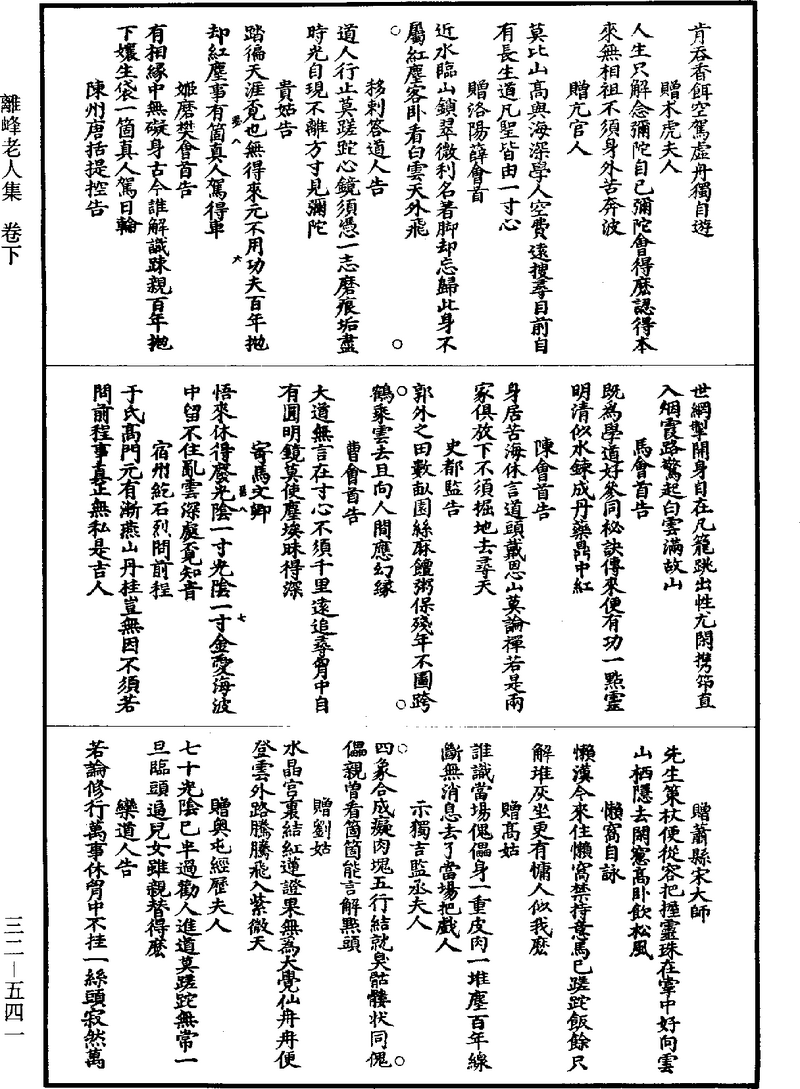 肯吞香餌空駕虛舟獨自遊
贈朮虎夫人
人生只解念彌陀自己彌陀會得麽認得本
來無相祖不須身外苦奔波
贈亢官人
莫比山高與海深學人空費遠搜尋目前自
有長生道凡聖皆由一寸心
贈洛陽薛會首
近水臨山鎖翠微利名著脚却忘歸此身不
屬紅塵客卧看白雲天外飛
移剌答道人告
道人行止莫蹉跎心鏡須憑一志磨痕垢盡
時光自現不離方寸見彌陀
貴姑告
踏徧天涯覓也無得來元不用功夫百年抛
却紅塵事有箇真人駕得車
姬磨樊會首告
有相緣中無礙身古今誰解識踈親百年抛
下孃生袋一箇真人駕日輪
陳州唐括提控告
世網掣開身自在凡籠跳出性尤閑携笻直
入烟霞路驚起白雲滿故山
馬會首告
既爲學道好參同秘訣傳來便有功一點靈
明清似水鍊成丹藥鼎中紅
陳會首告
身居苦海休言道頭戴恩山莫論禪若是兩
家俱放下不須掘地去尋天
史都監告
郭外之田數畝園絲麻饘粥保殘年不圖跨
鶴乘雲去且向人間應幻緣
曹會首告
大道無言在寸心不須千里遠追尋胷中自
有圓明鏡莫使塵埃昧得深
寄馬文卿
悟來休得廢光陰一寸光陰一寸金愛海波
中留不住亂雲深處覓知音
宿州紇石烈問前程
于氏高門元有漸燕山丹桂豈無因不須若
問前程事真正無私是吉人
贈蕭縣宋大師
先生策杖便從容把握靈珠在掌中好向雲
山栖隱去閑窻高卧飲松風
懶窩自詠
懶漢今來住懶窩禁持意馬已蹉跎飯餘只
解堆灰坐更有慵人似我麽
贈高姑
誰識當場傀儡身一重皮肉一堆塵百年線
斷無消息去了當場把戲人
示獨吉監丞夫人
四象合成癡肉塊五行結就臭骷髏狀同傀
儡親曾看箇箇能言解點頭
贈劉姑
水晶宫裏結紅蓮證果無爲大覺仙冉冉便
登雲外路騰騰飛入紫微天
贈奥屯經歷夫人
七十光陰已半過勸人進道莫蹉跎無常一
旦臨頭逼兒女雖親替得麽
欒道人告
若論修行萬事休胷中不挂一絲頭寂然萬
離峰老人集　卷下
三二—五四一